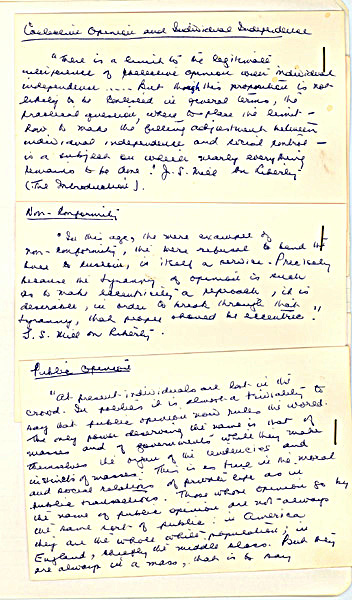 Collective Opinion and Individual Independence
"There is a limit to the legitimate
interference of collective opinion with individual
independence ..... But though this proposition is not
likely to be contested in general terms, the
practical question, where to place the limit –
how to make the fitting adjustment between
individual independence and social control –
is a subject on which nearly everything
remains to be done". J.S. Mill On Liberty
(The Introduction).
Non-Conformity
"In this age, the mere example of
non-conformity, the mere refusal to bend the
knee to custom, is itself a service. Precisely
because the tyranny of opinion is such
as to make eccentricity a reproach, it is
desirable, in order to break through that
tyranny, that people should be eccentric"
J.S. Mill on Liberty.
Public Opinion
"At present individuals are lost in the
crowd. In politics it is almost a triviality to
say that public opinion now rules the world.
The only power deserving the name is that of
masses and of governments while they make
themselves the organ of the tendencies and
instincts of masses. This is as true in the moral
and social relations of private life as in
public transactions. Those whose opinion go by
the name of public opinion are not always
the same sort of public: in America
they are the whole white population; in
England, chiefly the middle class. But they
are always in a mass, that is to say